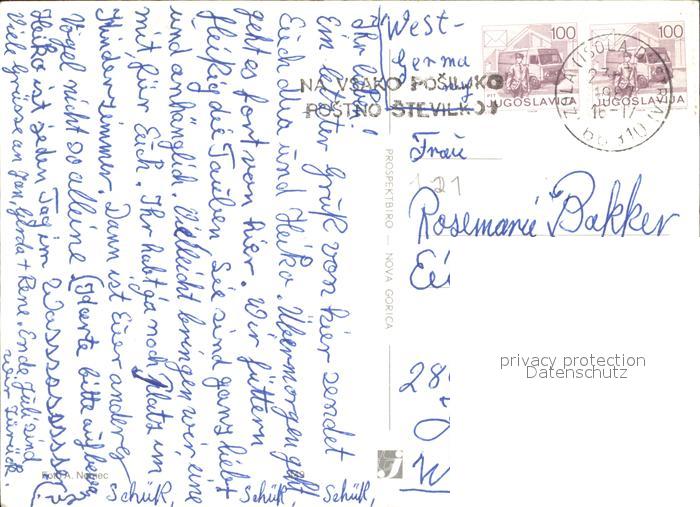 Ihr Lieben!
Ein letzter Gruß von hier sendet
Euch Ina und Heiko. Übermorgen geht
geht es fort von hier. Wir füttern
fleißig die Tauben. Sie sind ganz lieb
und anhänglich. Vielleicht bringen wir eine
mit für Euch. Ihr habt ja noch Platz im
Kinderzimmer. Dann ist Euer anderer
Vogel nicht so alleine (Karte bitte aufheben
Heiko ist jeden Tag im Wasssssssser
Viele Grüsse an Jan, Gerda + Rene. Ende Juli sind
wir zurück.
Schük, Schük, Schük,
West-
Germany
NA VSAKO POŠILJKO
POŠTNO ŠTEVILKO!
100
100
PTT JUGOSLAVIJA
JUGOSLAVIJA
IZOLA
16-17
66310
Frau
121
Rosemarie Bakker
28
PROSPEKTBIRO — NOVA GORICA
Foto A. Nemec
privacy protection
Datenschutz